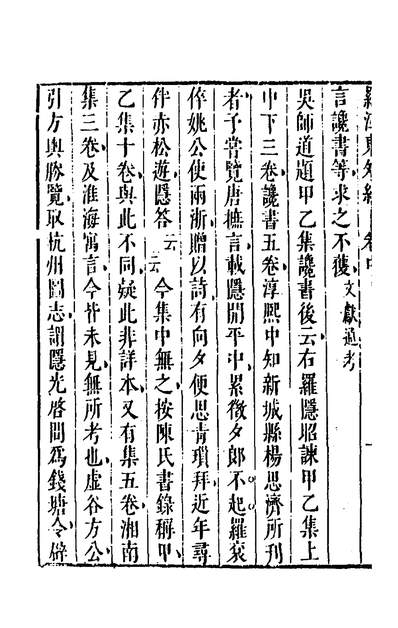 羅江東外紀 卷中
言讒書等求之不獲文獻通考
吳師道題甲乙集讒書後云右羅隱昭諫甲乙集上
中下三卷讒書五卷淳熙中知新城縣楊思濟所刊
者予嘗覽唐摭言載隱開平中累徵夕郎不起羅衮
倅姚公使兩浙贈以詩有向夕便思青瑣拜近年尋
伴赤松遊隱答云云今集中無之按陳氏書錄稱甲
乙集十卷與此不同疑此非詳本又有集五卷湘南
集三卷及淮海寓言今皆未見無所考也虛谷方公
引方輿勝覽取杭州圖志謂隱光啓間為錢塘令辟